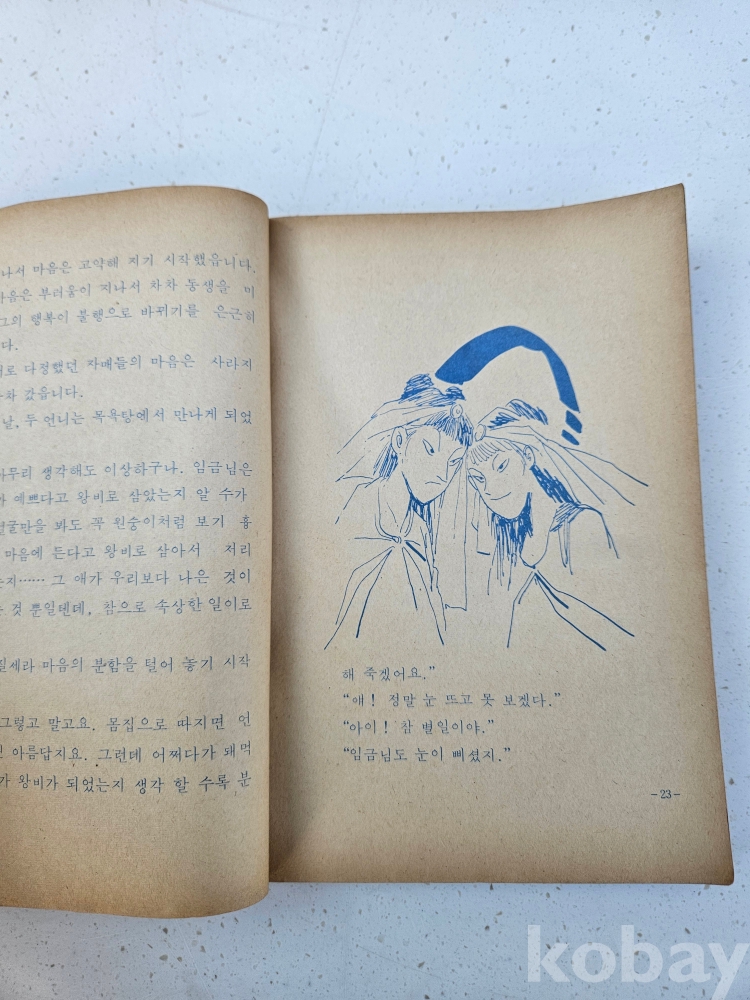 나서 마음은 고약해 지기 시작했읍니다.
마음은 부러움이 지나서 차차 동생을 미
그의 행복이 불행으로 바뀌기를 은근히
다.
로 다정했던 자매들의 마음은 사라지
차 갔읍니다.
날, 두 언니는 목욕탕에서 만나게 되었
무리 생각해도 이상하구나. 임금님은
예쁘다고 왕비로 삼았는지 알 수가
굴만을 봐도 꼭 원숭이처럼 보기 흉
마음에 든다고 왕비로 삼아서 저리
지…… 그 애가 우리보다 나은 것이
것 뿐일텐데, 참으로 속상한 일이로
질세라 마음의 분함을 털어 놓기 시작
그렇고 말고요. 몸집으로 따지면 언
아름답지요. 그런데 어쩌다가 돼먹
가 왕비가 되었는지 생각 할 수록 분
해 죽겠어요.”
“얘! 정말 눈 뜨고 못 보겠다.”
“아이! 참 별일이야.”
“임금님도 눈이 삐셨지.”
-23-
kobay